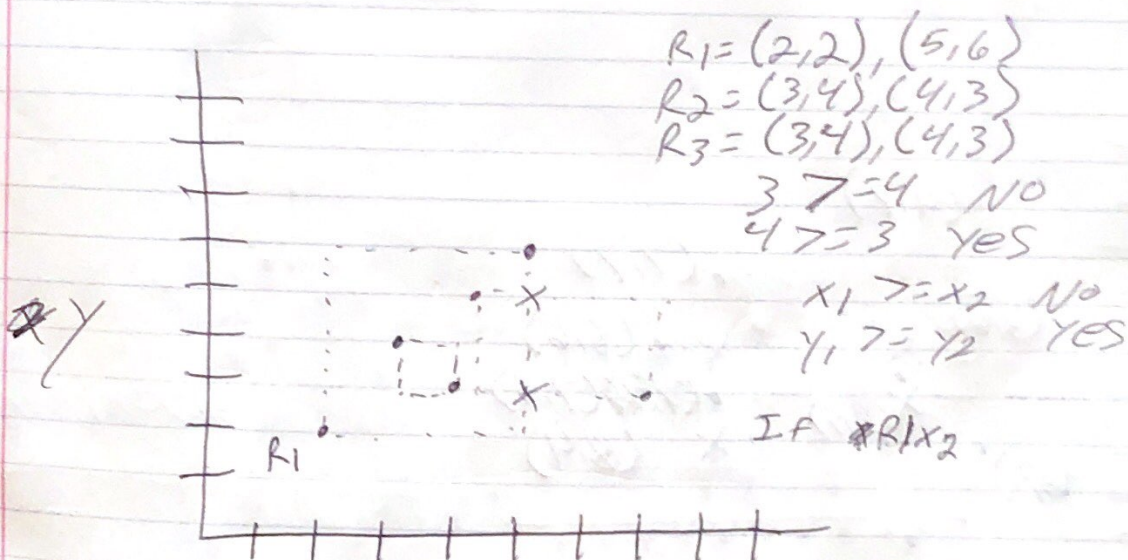 R1=(2,2),(5,6)
R2=(3,4),(4,3)
R3=(3,4),(4,3)
3 >=4 NO
4>=3 Yes
x1 >=x2 NO
y1 >= y2 Yes
Y
X
X
R1
If R1x2